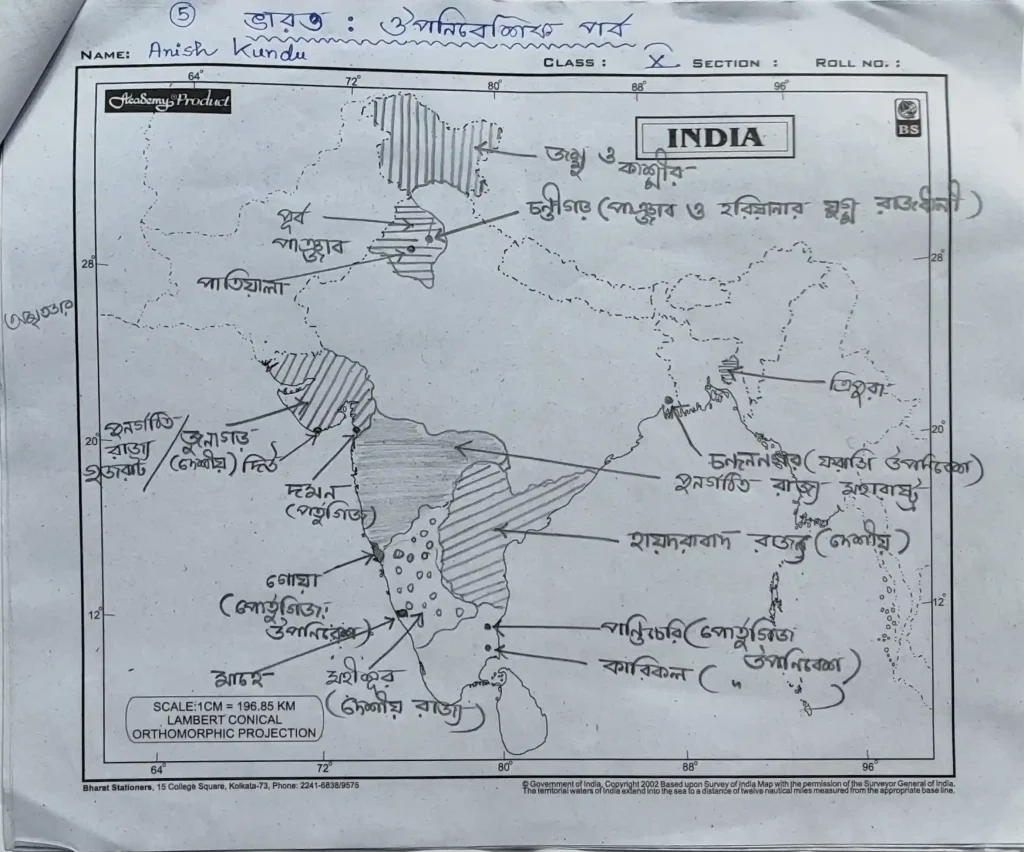 ⑤ ভারত : ঔপনিবেশিক পর্ব
NAME: Anish Kundu CLASS : X SECTION : ROLL NO. :
64° 72° 80° 88° 96°
Academy Product
INDIA
BS
জম্মু ও
কাশ্মীর
চন্ডীগড় (পাঞ্জাব ও হরিয়ানার যুগ্ম রাজধানী)
পূর্ব
পাঞ্জাব
28° 28°
পাতিয়ালা
ত্রিপুরা
20° 20°
পুনর্গঠিত
রাজ্য
গুজরাট
জুনাগড়
(দেশীয়)
দিউ
চন্দননগর (ফরাসী উপনিবেশ)
পুনর্গঠিত রাজ্য মহারাষ্ট্র
দমন
(পর্তুগিজ)
হায়দরাবাদ রাজ্য (দেশীয়)
গোয়া
(পোর্তুগিজ
উপনিবেশ)
12° 12°
পন্ডিচেরি (পোর্তুগিজ
উপনিবেশ)
কারিকল ( " )
মাহে
মহীশূর
(দেশীয় রাজ্য)
SCALE:1CM = 196.85 KM
LAMBERT CONICAL
ORTHOMORPHIC PROJECTION
64° 72° 80° 88° 96°
Bharat Stationers, 15 College Square, Kolkata-73, Phone: 2241-6838/9575
© Government of India, Copyright 2002 Based upon Survey of India Map with the permission of the Surveyor General of India.
The territorial waters of India extend into the sea to a distance of twelve nautical miles measured from the appropriate base line.